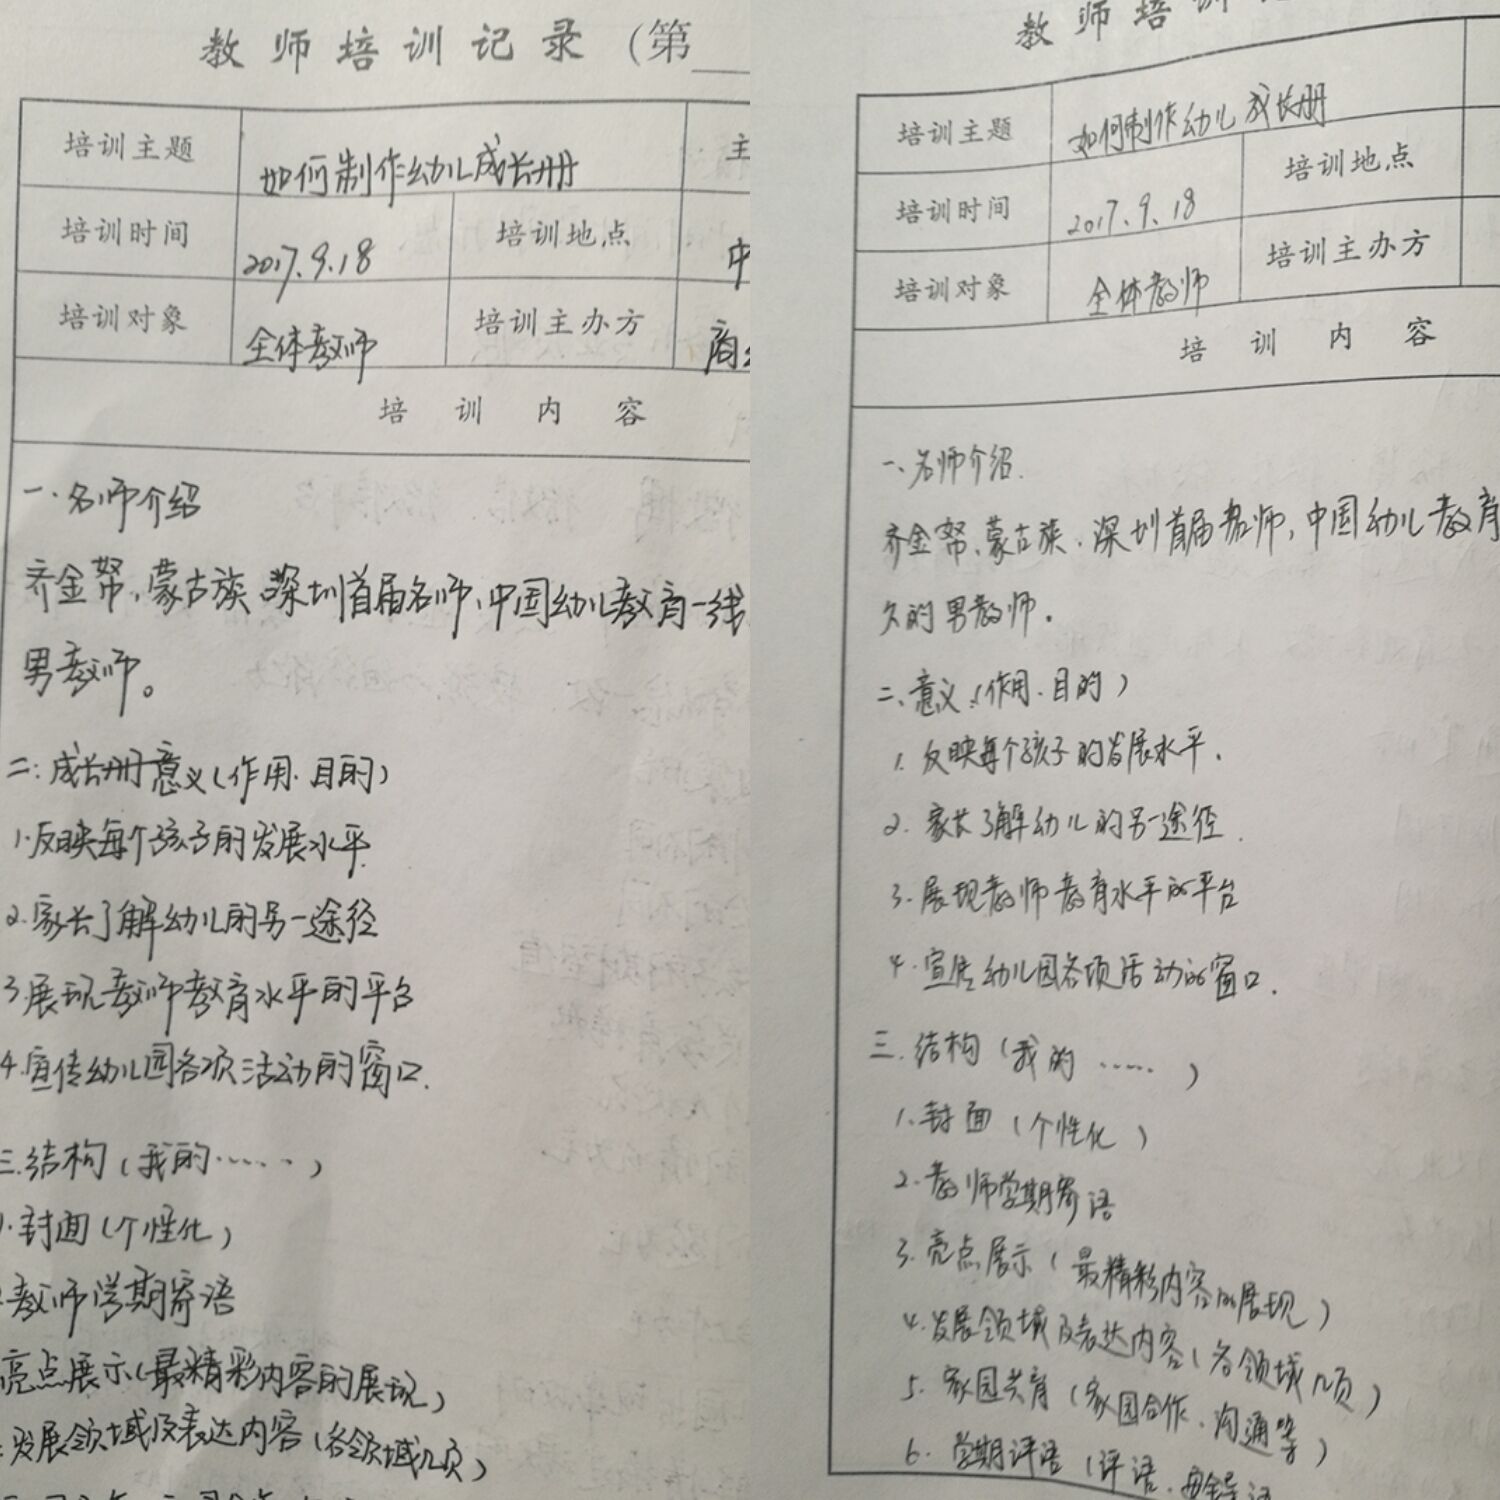 教师培训记录(第
培训主题 如何制作幼儿成长册 主
培训时间 2017.9.18 培训地点 中
培训对象 全体教师 培训主办方 商
培训内容
一.名师介绍
齐金帮,蒙古族.深圳首届名师,中国幼儿教育一线
男教师。
二:成长册意义(作用.目的)
1.反映每个孩子的发展水平.
2.家长了解幼儿的另一途径
3.展现教师教育水平的平台
4.宣传幼儿园各项活动的窗口.
三.结构(我的……)
1.封面(个性化)
教师学期寄语
亮点展示(最精彩内容的展现)
发展领域及表达内容(各领域几页)
教师培训
培训主题 如何制作幼儿成长册
培训时间 2017.9.18 培训地点
培训对象 全体教师 培训主办方
培训内容
一、名师介绍.
齐金帮、蒙古族.深圳首届名师,中国幼儿教育
久的男教师.
二、意义(作用.目的)
1.反映每个孩子的发展水平.
2.家长了解幼儿的另一途径.
3.展现教师教育水平的平台
4.宣传幼儿园各项活动的窗口.
三.结构(我的……)
1.封面(个性化)
2.教师学期寄语
3.亮点展示(最精彩内容的展现)
4.发展领域及表达内容(各领域几页)
5.家园共育(家园合作.沟通等)
6.学期评语(评语.